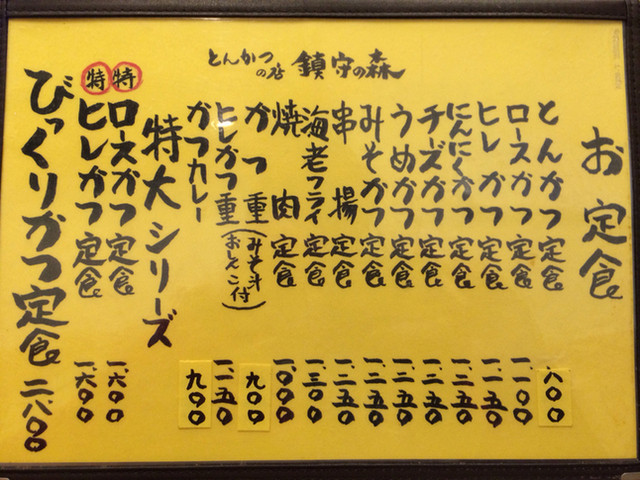 とんかつの店 鎮守の森
お定食
とんかつ定食 八〇〇
ロースかつ定食 一、一〇〇
ヒレかつ定食 一、一五〇
にんにくかつ定食 一、二五〇
チーズかつ定食 一、二五〇
うめかつ定食 一、二五〇
みそかつ定食 一、二五〇
串揚定食 一、二五〇
海老フライ定食 一、三〇〇
焼肉定食 一、〇〇〇
かつ重 九〇〇
ヒレかつ重 一、一五〇
(みそ汁おしんこ付)
かつカレー 九〇〇
特大シリーズ
特 ロースかつ定食 一、六〇〇
特 ヒレかつ定食 一、六〇〇
びっくりかつ定食 二、八〇〇